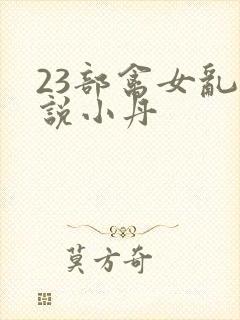 23部禽女亂
說小丹
莫方奇